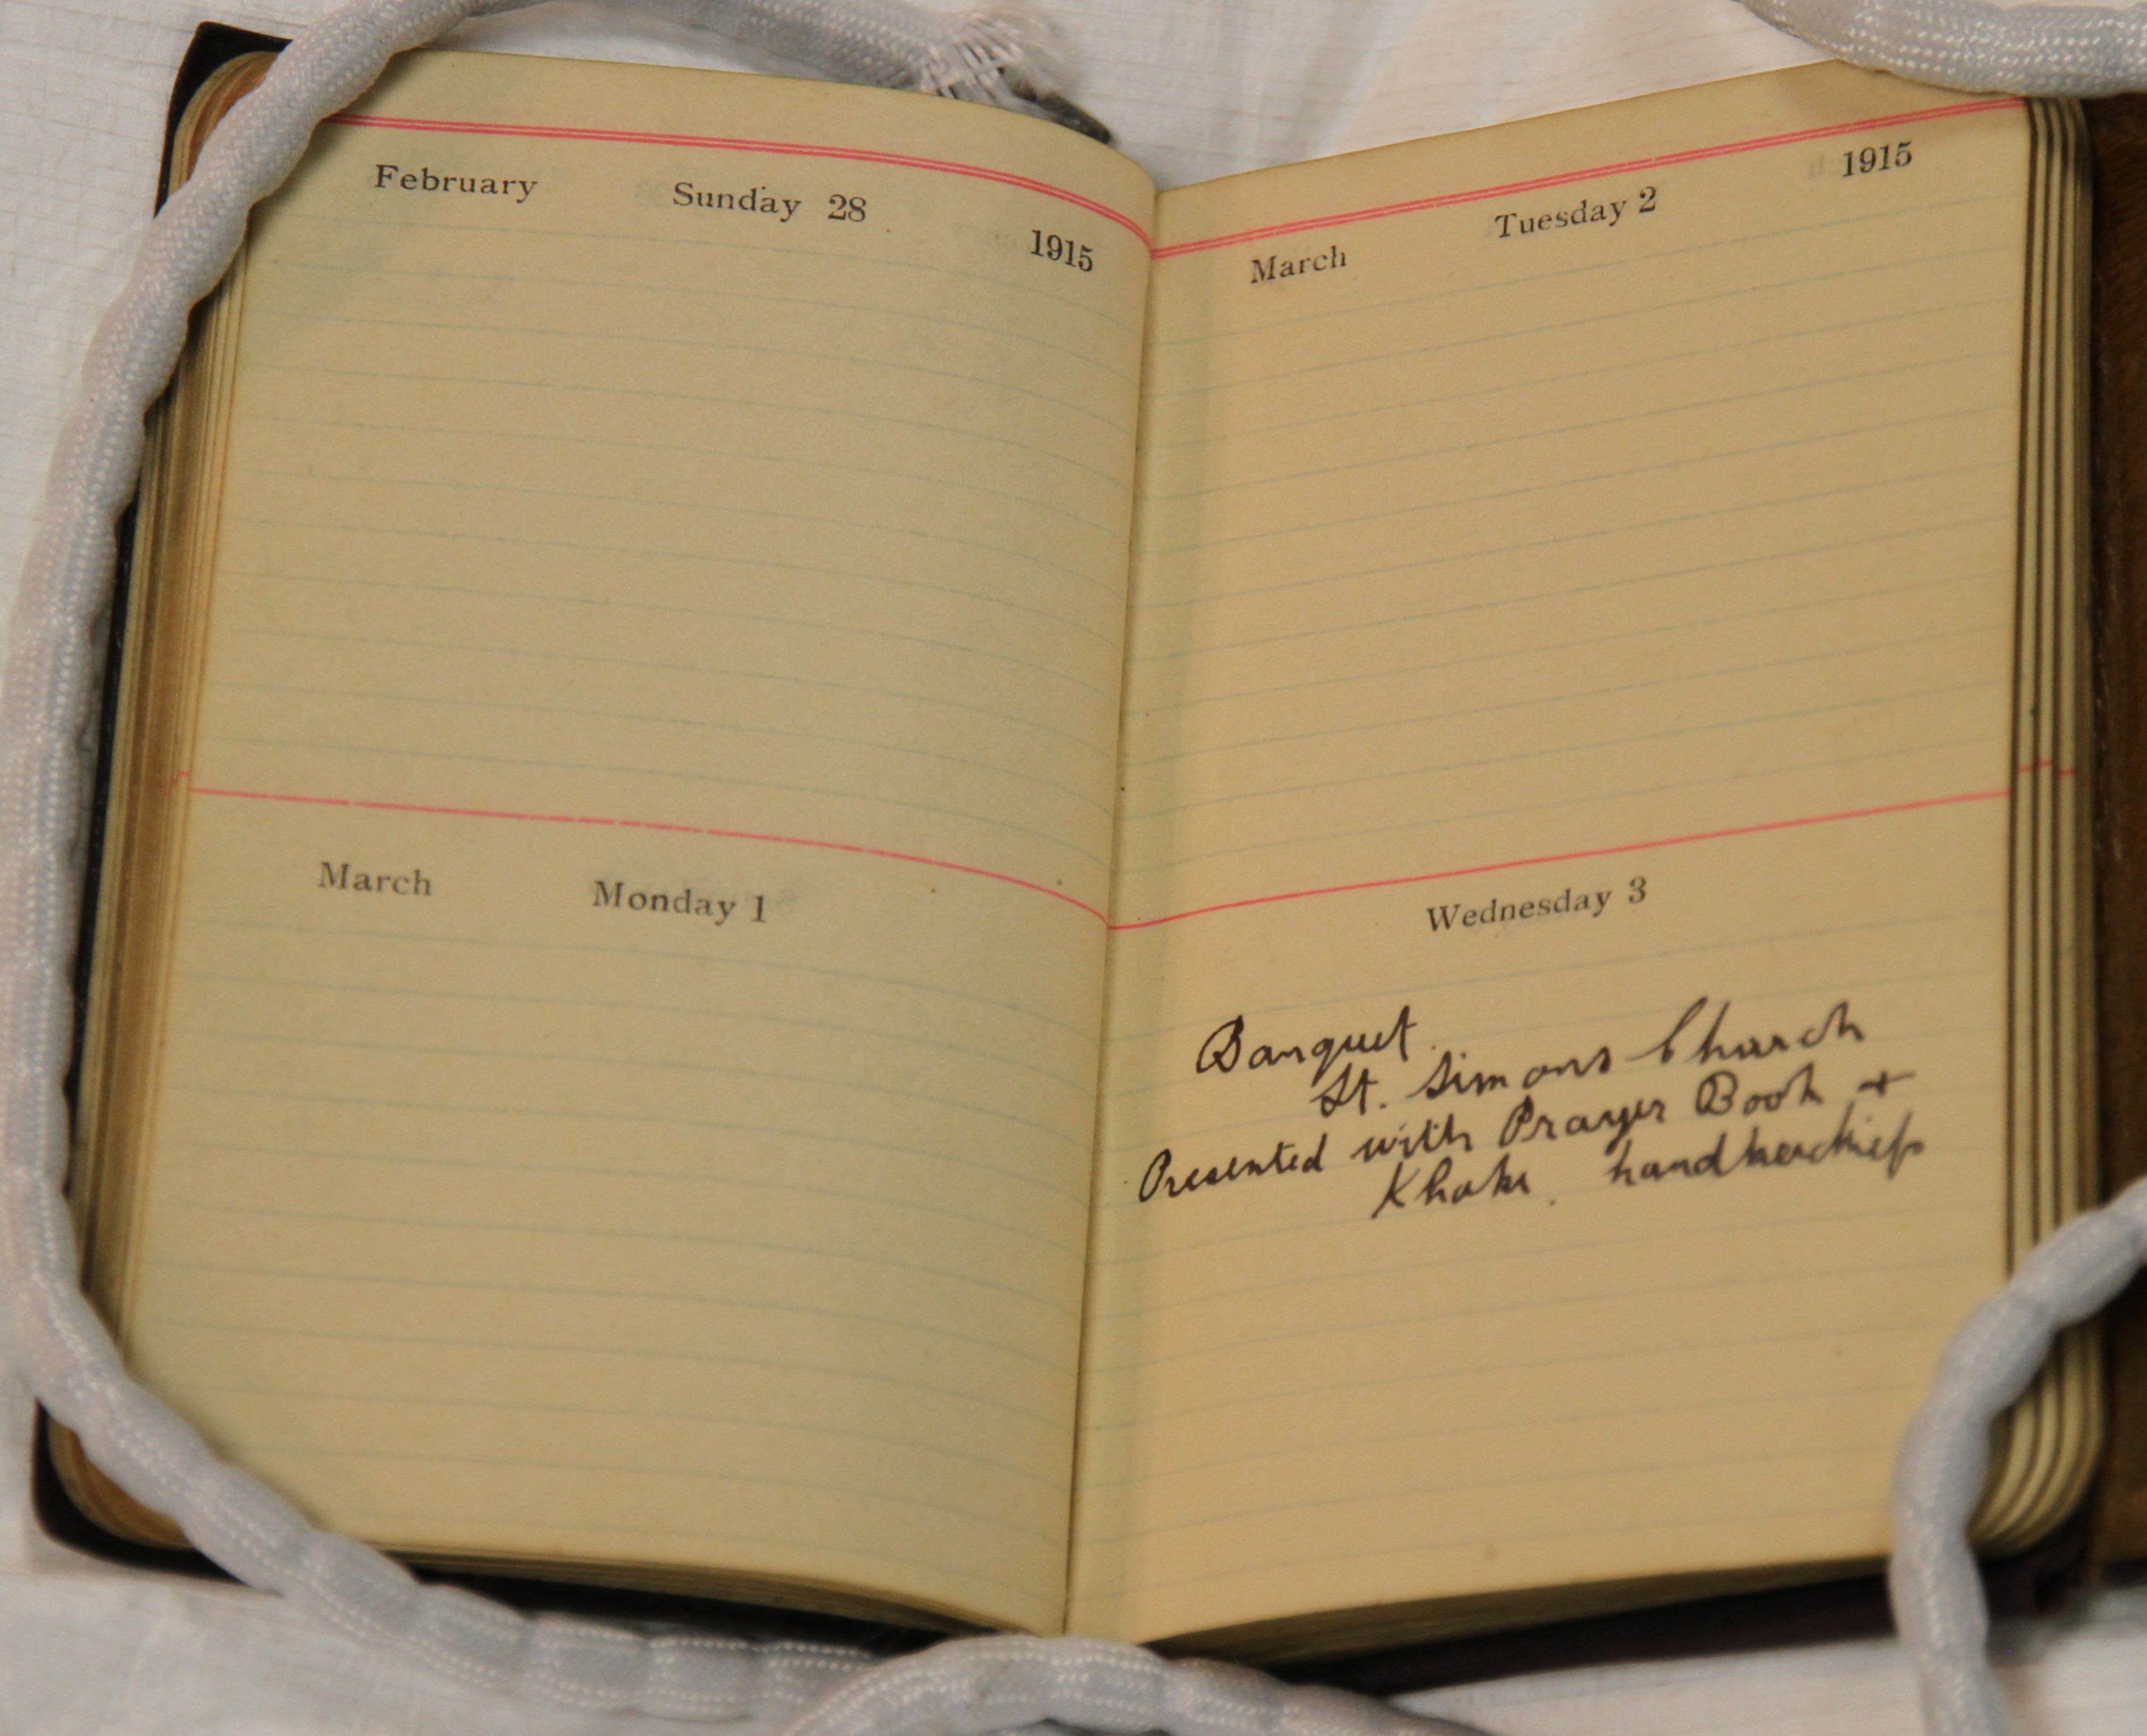 February Sunday 28 1915
March Monday 1
March Tuesday 2 1915
Wednesday 3
Banquet.
St. Simons Church
Presented with Prayer Book +
Khaki handkerchiefs